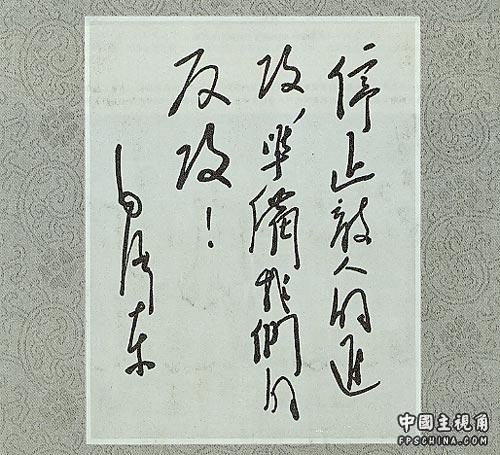 停止敌人的進
攻，準備我們的
反攻！
毛泽东
中國主視角
FPSCHINA.COM